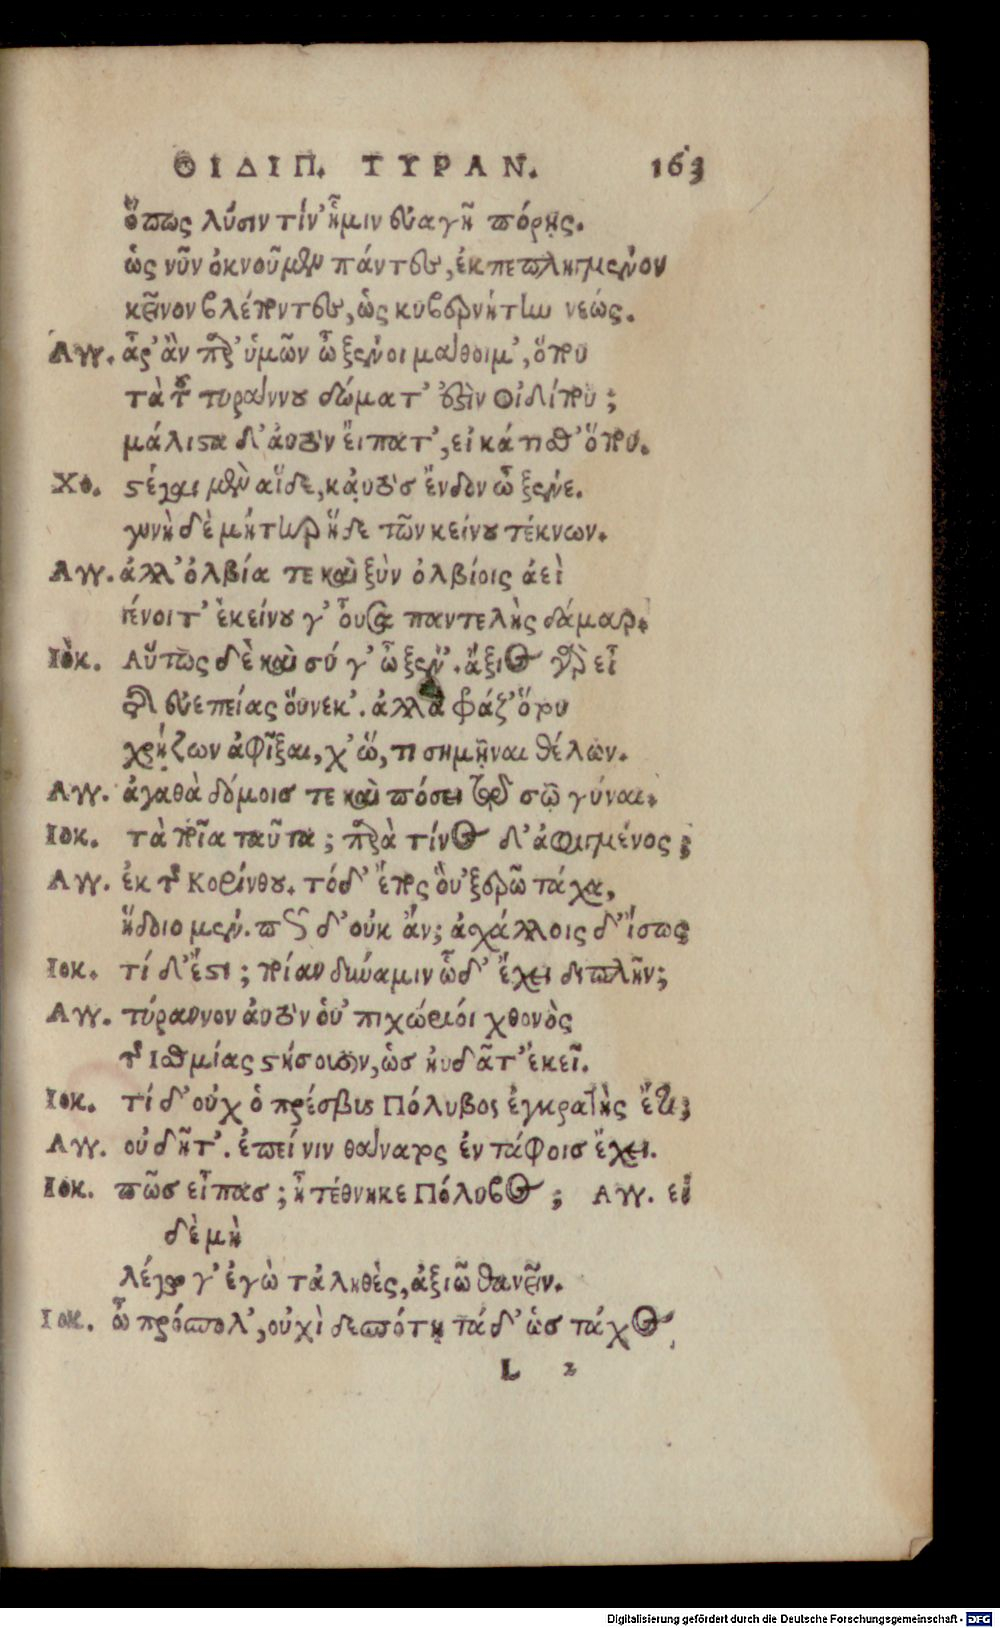 ΟΙΔΙΠ. ΤΥΡΑΝ. 163
ὅπως λύσιν τίν' ἥμιν εὐαγῆ πόρῃς.
ὡς νῦν ὀκνοῦμεν πάντες, ἐκπεπληγμένον
κεῖνον βλέποντες, ὡς κυβερνήτην νεώς.
Αγγ. ἆρ' ἂν παρ' ὑμῶν ὦ ξένοι μάθοιμ', ὅπου
τὰ τοῦ τυράννου δώματ' ἐστὶν Οἰδίπου;
μάλιστα δ' ἀυτὸν ἔιπατ', εἰ κάτισθ' ὅπου.
Χο. στέγαι μὲν αἵδε, κᾀυτὸς ἔνδον ὦ ξένε.
γυνὴ δὲ μήτηρ ἥδε τῶν κείνου τέκνων.
Αγγ. ἀλλ' ὀλβία τε καὶ ξὺν ὀλβίοις ἀεὶ
γένοιτ' ἐκείνου γ' οὖσα παντελὴς δάμαρ.
Ιοκ. Αὔτως δὲ καὶ σύ γ' ὦ ξέν'. ἄξιος γὰρ εἶ
τῆς εὐεπείας οὕνεκ'. ἀλλὰ φράζ' ὅτου
χρῄζων ἀφῖξαι, χ' ὤ, τι σημῆναι θέλων.
Αγγ. ἀγαθὰ δόμοις τε καὶ πόσει τῷ σῷ γύναι.
Ιοκ. τὰ ποῖα ταῦτα; παρὰ τίνος δ' ἀφιγμένος;
Αγγ. ἐκ τῆς Κορίνθου. τόδ' ἔπος οὑ' ξερῶ τάχα,
ἥδοιο μέν. πῶς δ' οὐκ ἄν; ἀχάλλοις δ' ἴσως
Ιοκ. τί δ' ἔστι; ποίαν δύναμιν ὧδ' ἔχει διπλῆν;
Αγγ. τύραννον ἀυτὸν οὑ' πιχώριοι χθονὸς
τῆς Ισθμίας στήσουσιν, ὡς ηὐδᾶτ' ἐκεῖ.
Ιοκ. τί δ' οὐχ ὁ πρέσβυς Πόλυβος ἐγκρατὴς ἔτι;
Αγγ. οὐ δῆτ'. ἐπεί νιν θάνατος ἐν τάφοις ἔχει.
Ιοκ. πῶς εἶπας; ἦ τέθνηκε Πόλυβος; Αγγ. εἰ
δὲ μὴ
λέγω γ' ἐγὼ τἀληθὲς, ἀξιῶ θανεῖν.
Ιοκ. ὦ πρόσπολ', οὐχὶ δεσπότῃ τάδ' ὡς τάχος
L 2
Digitalisierung gefördert durch die Deutsche Forschungsgemeinschaft - DFG